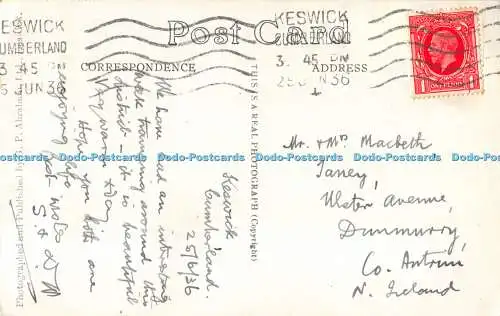 KESWICK
CUMBERLAND
3 45 PM
25 JUN 36
Post Card
KESWICK
CUMBERLAND
3. 45 PM
25 JUN 36
CORRESPONDENCE
ADDRESS
THIS IS A REAL PHOTOGRAPH (Copyright)
Photographed and Published by G. P. Abraham, Ltd., Keswick.
1 ONE PENNY 1
Keswick
Cumberland.
25/6/36
We have had an interesting
week tramping around this
district - it is beautiful.
Very warm today.
Hope you both are
enjoying life
Best wishes
S & D W
Mr. & Mrs Macbeth
Ulster Avenue,
Dunmurry,
Co. Antrim
N. Ireland
Dodo-Postcards Dodo-Postcards Dodo-Postcards Dodo-Postcards Dodo-Postcards Dodo-Postcards